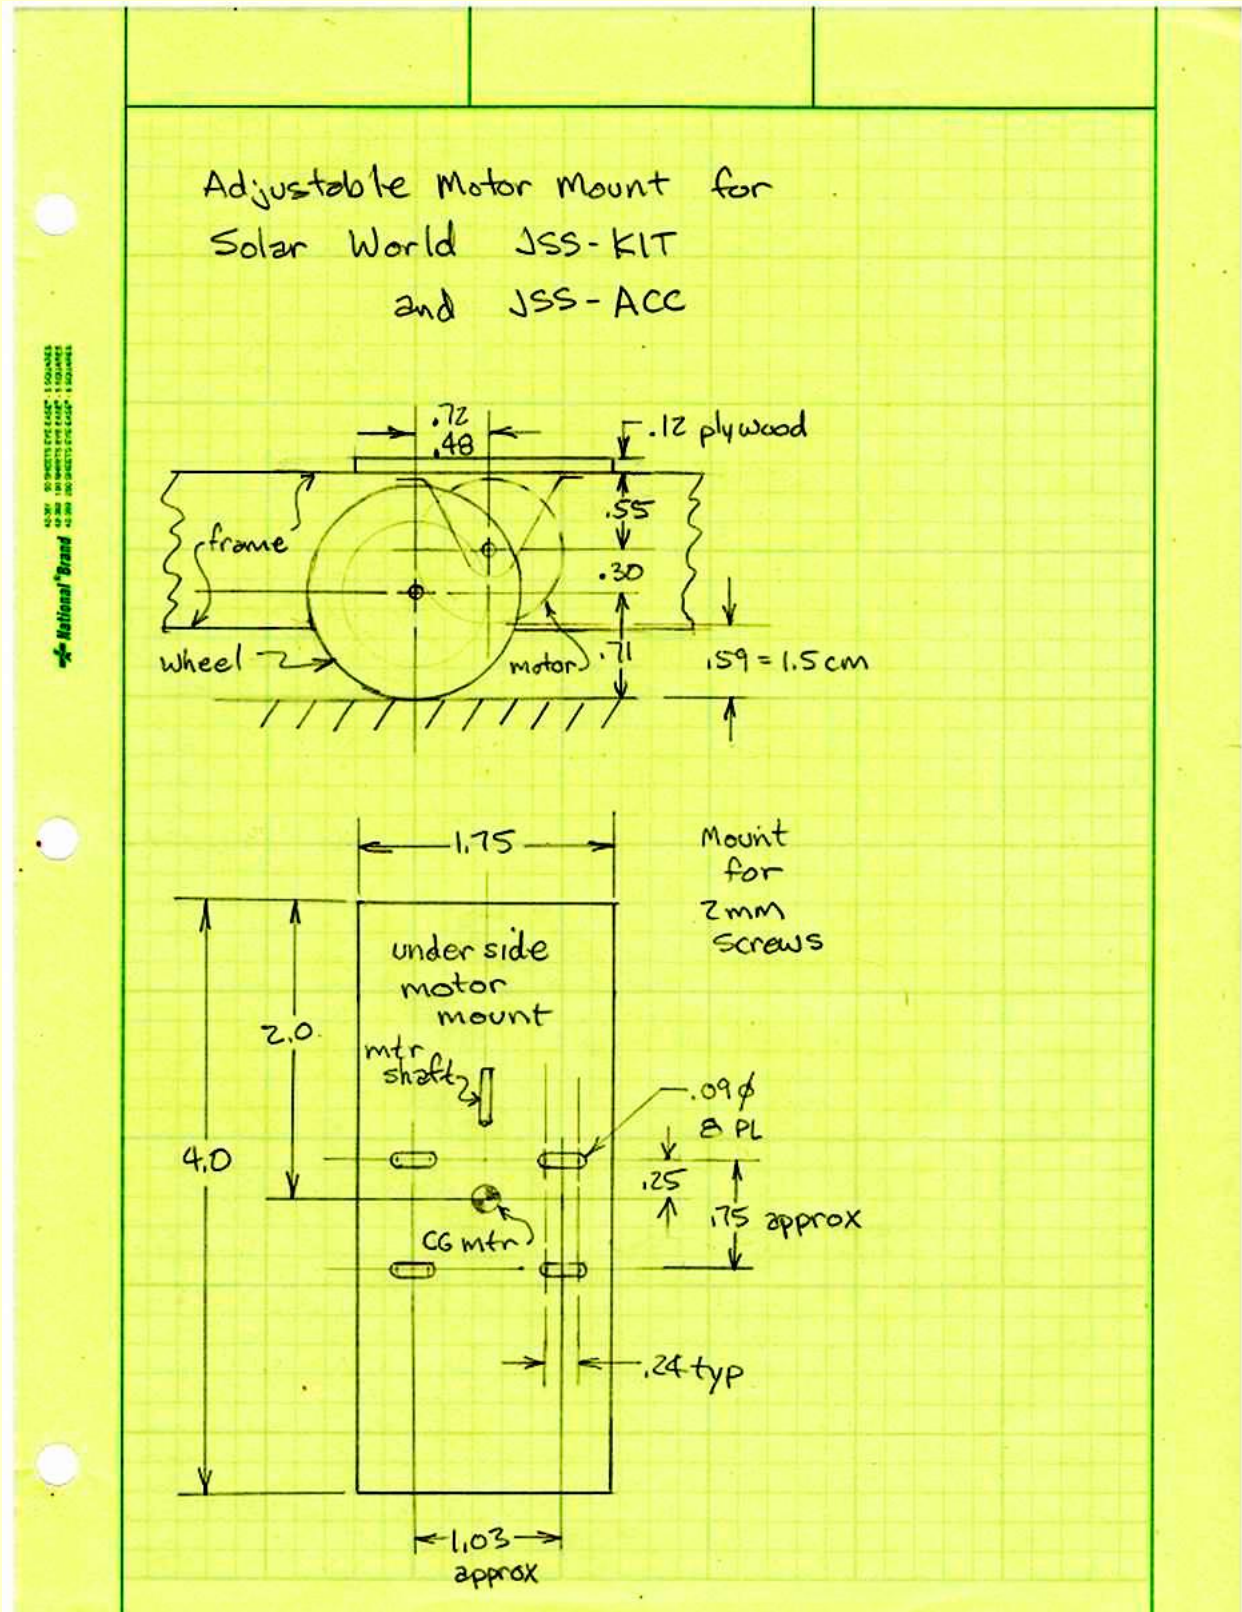 Adjustable Motor Mount for
Solar World JSS-KIT
and JSS-ACC
National® Brand
.72
.48
.12 plywood
.55
frame
.30
wheel
motor
.71
.59 = 1.5 cm
1.75
Mount
for
2mm
screws
under side
motor
mount
2.0
mtr
shaft
.09ϕ
8 PL
4.0
.25
.75 approx
CG mtr
.24 typ
1.03
approx